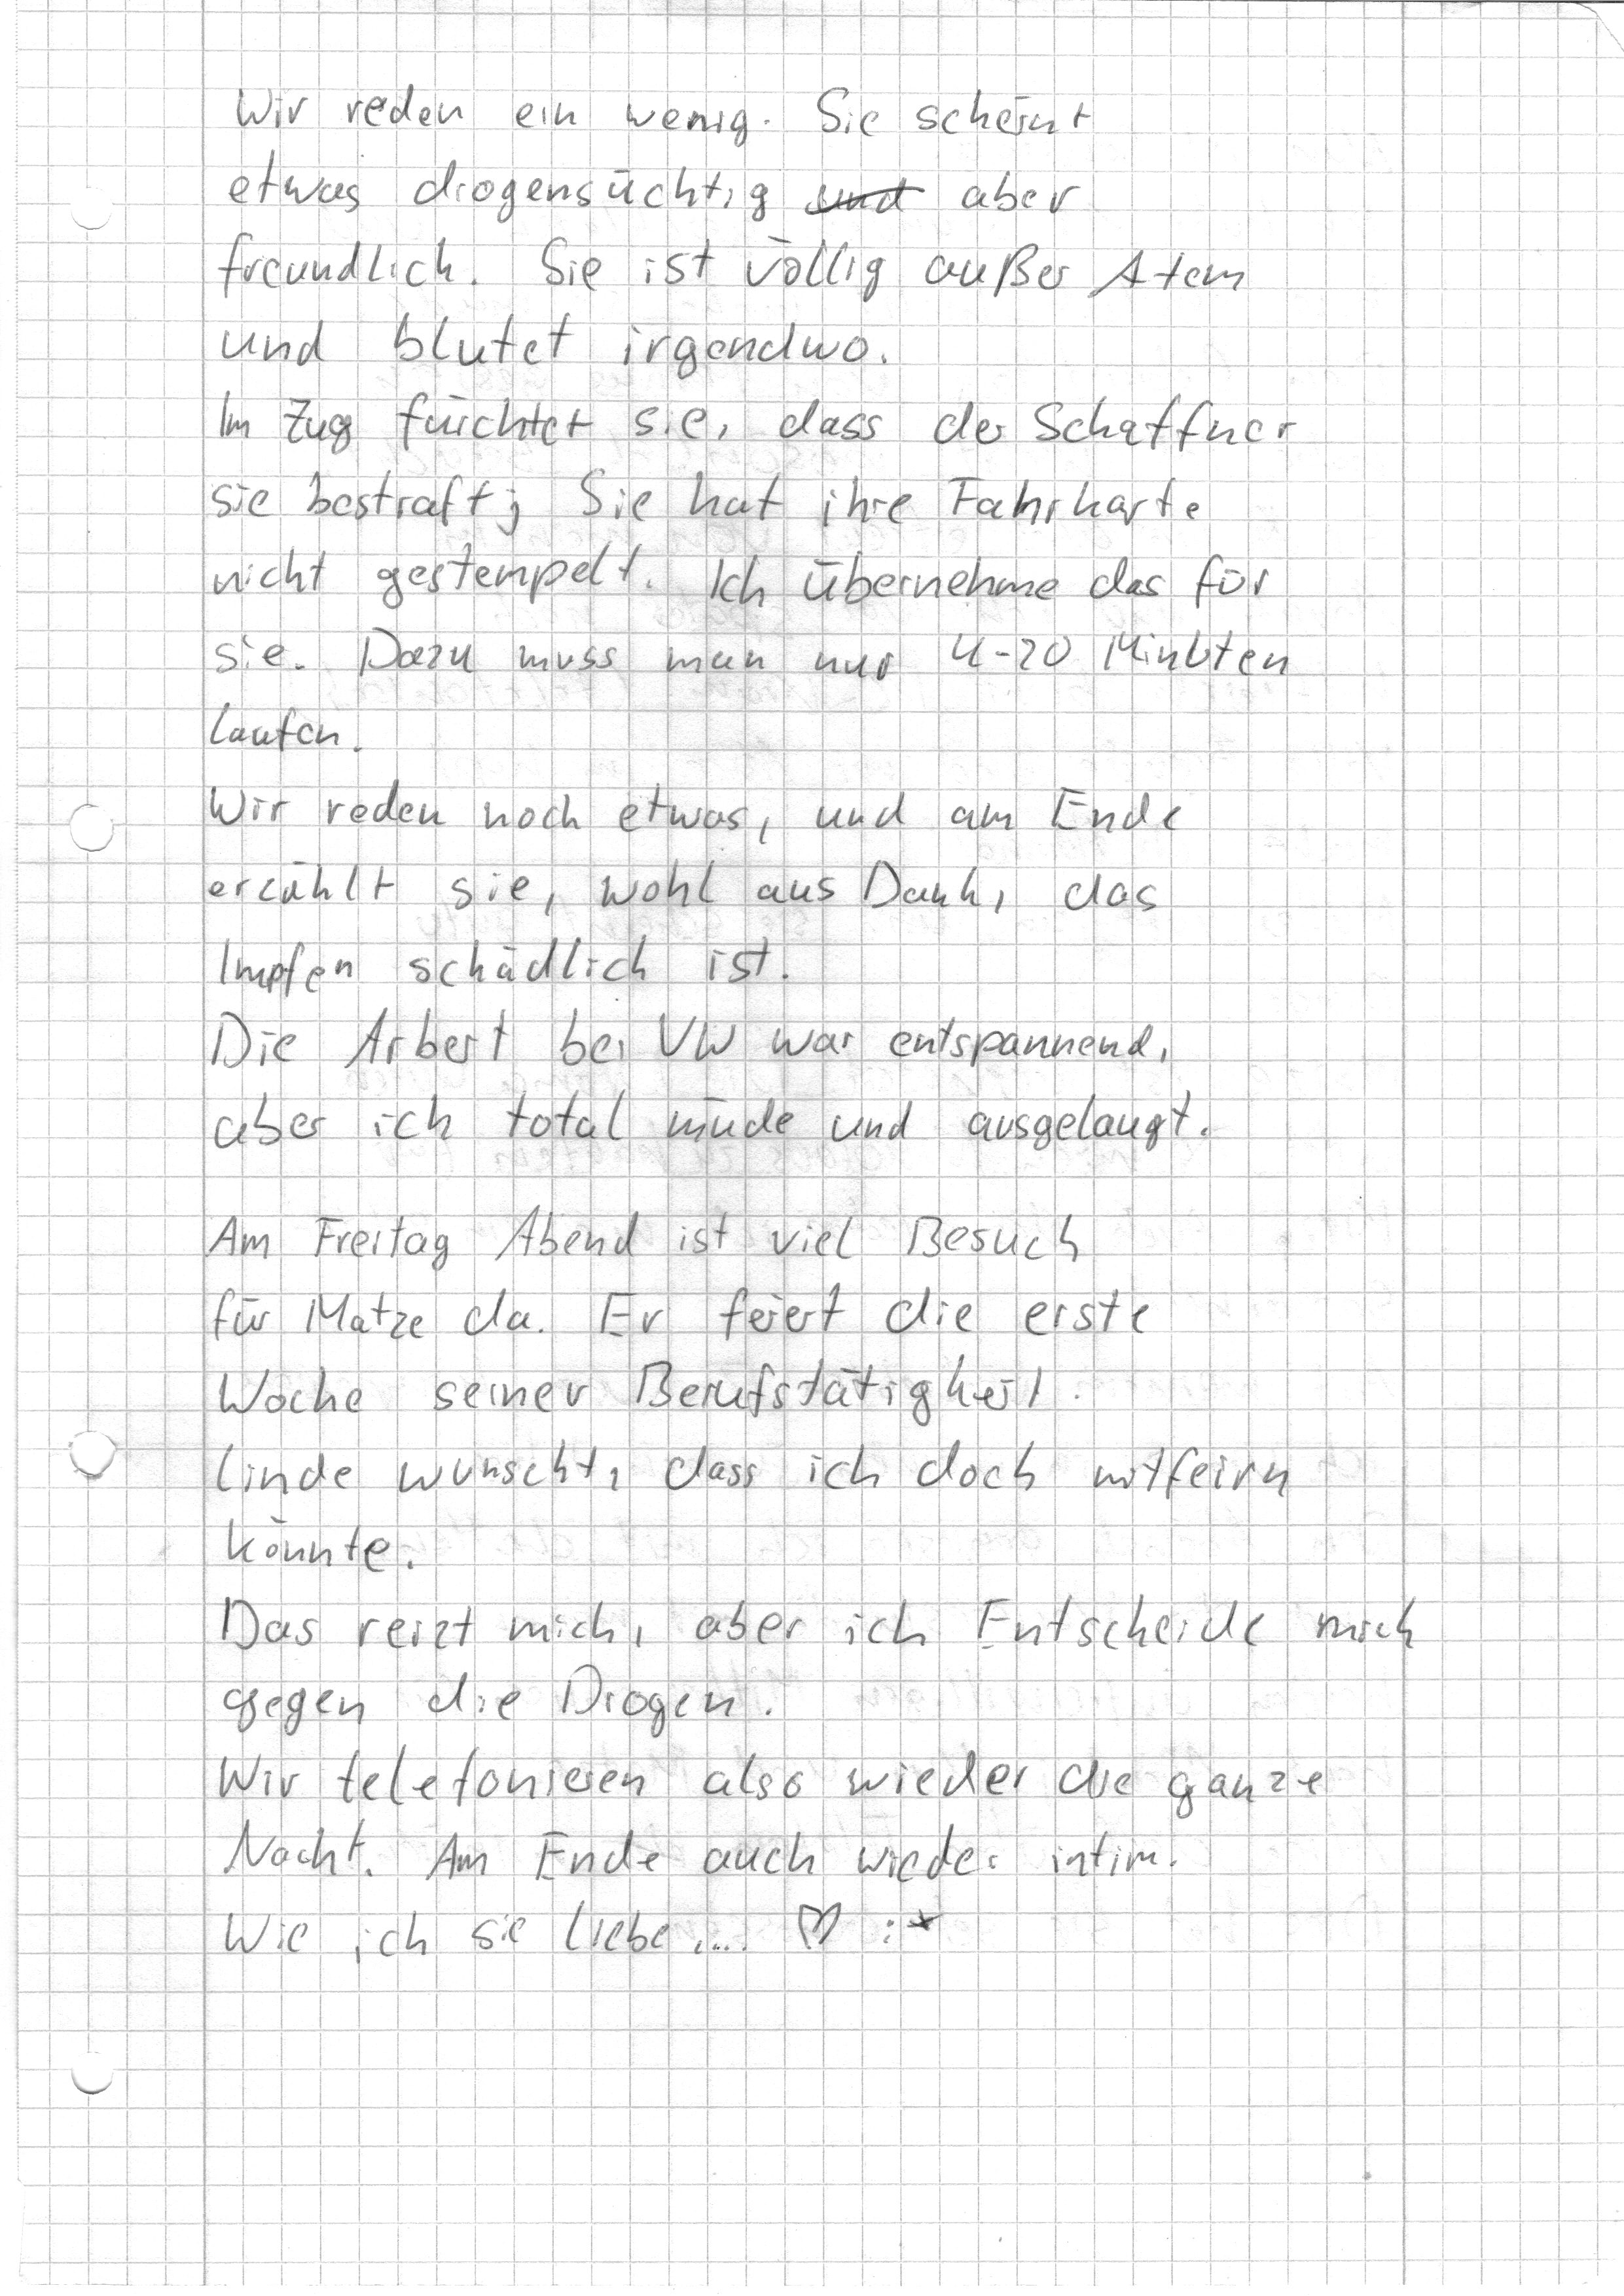 Wir reden ein wenig. Sie scheint
etwas drogensüchtig und aber
freundlich. Sie ist völlig außer Atem
und blutet irgendwo.
Im Zug fürchtet sie, dass der Schaffner
sie bestraft; Sie hat ihre Fahrkarte
nicht gestempelt. Ich übernehme das für
sie. Dazu muss man nur 4-20 Minuten
laufen.
Wir reden noch etwas, und am Ende
erzählt sie, wohl aus Dank, das
Impfen schädlich ist.
Die Arbeit bei VW war entspannend,
aber ich total müde und ausgelaugt.
Am Freitag Abend ist viel Besuch
für Matze da. Er feiert die erste
Woche seiner Berufstätigkeit.
Linde wünscht, dass ich doch mitfeirn
könnte.
Das reizt mich, aber ich Entscheide mich
gegen die Drogen.
Wir telefonieren also wieder die ganze
Nacht. Am Ende auch wieder intim.
Wie ich sie liebe.... ♡ :*